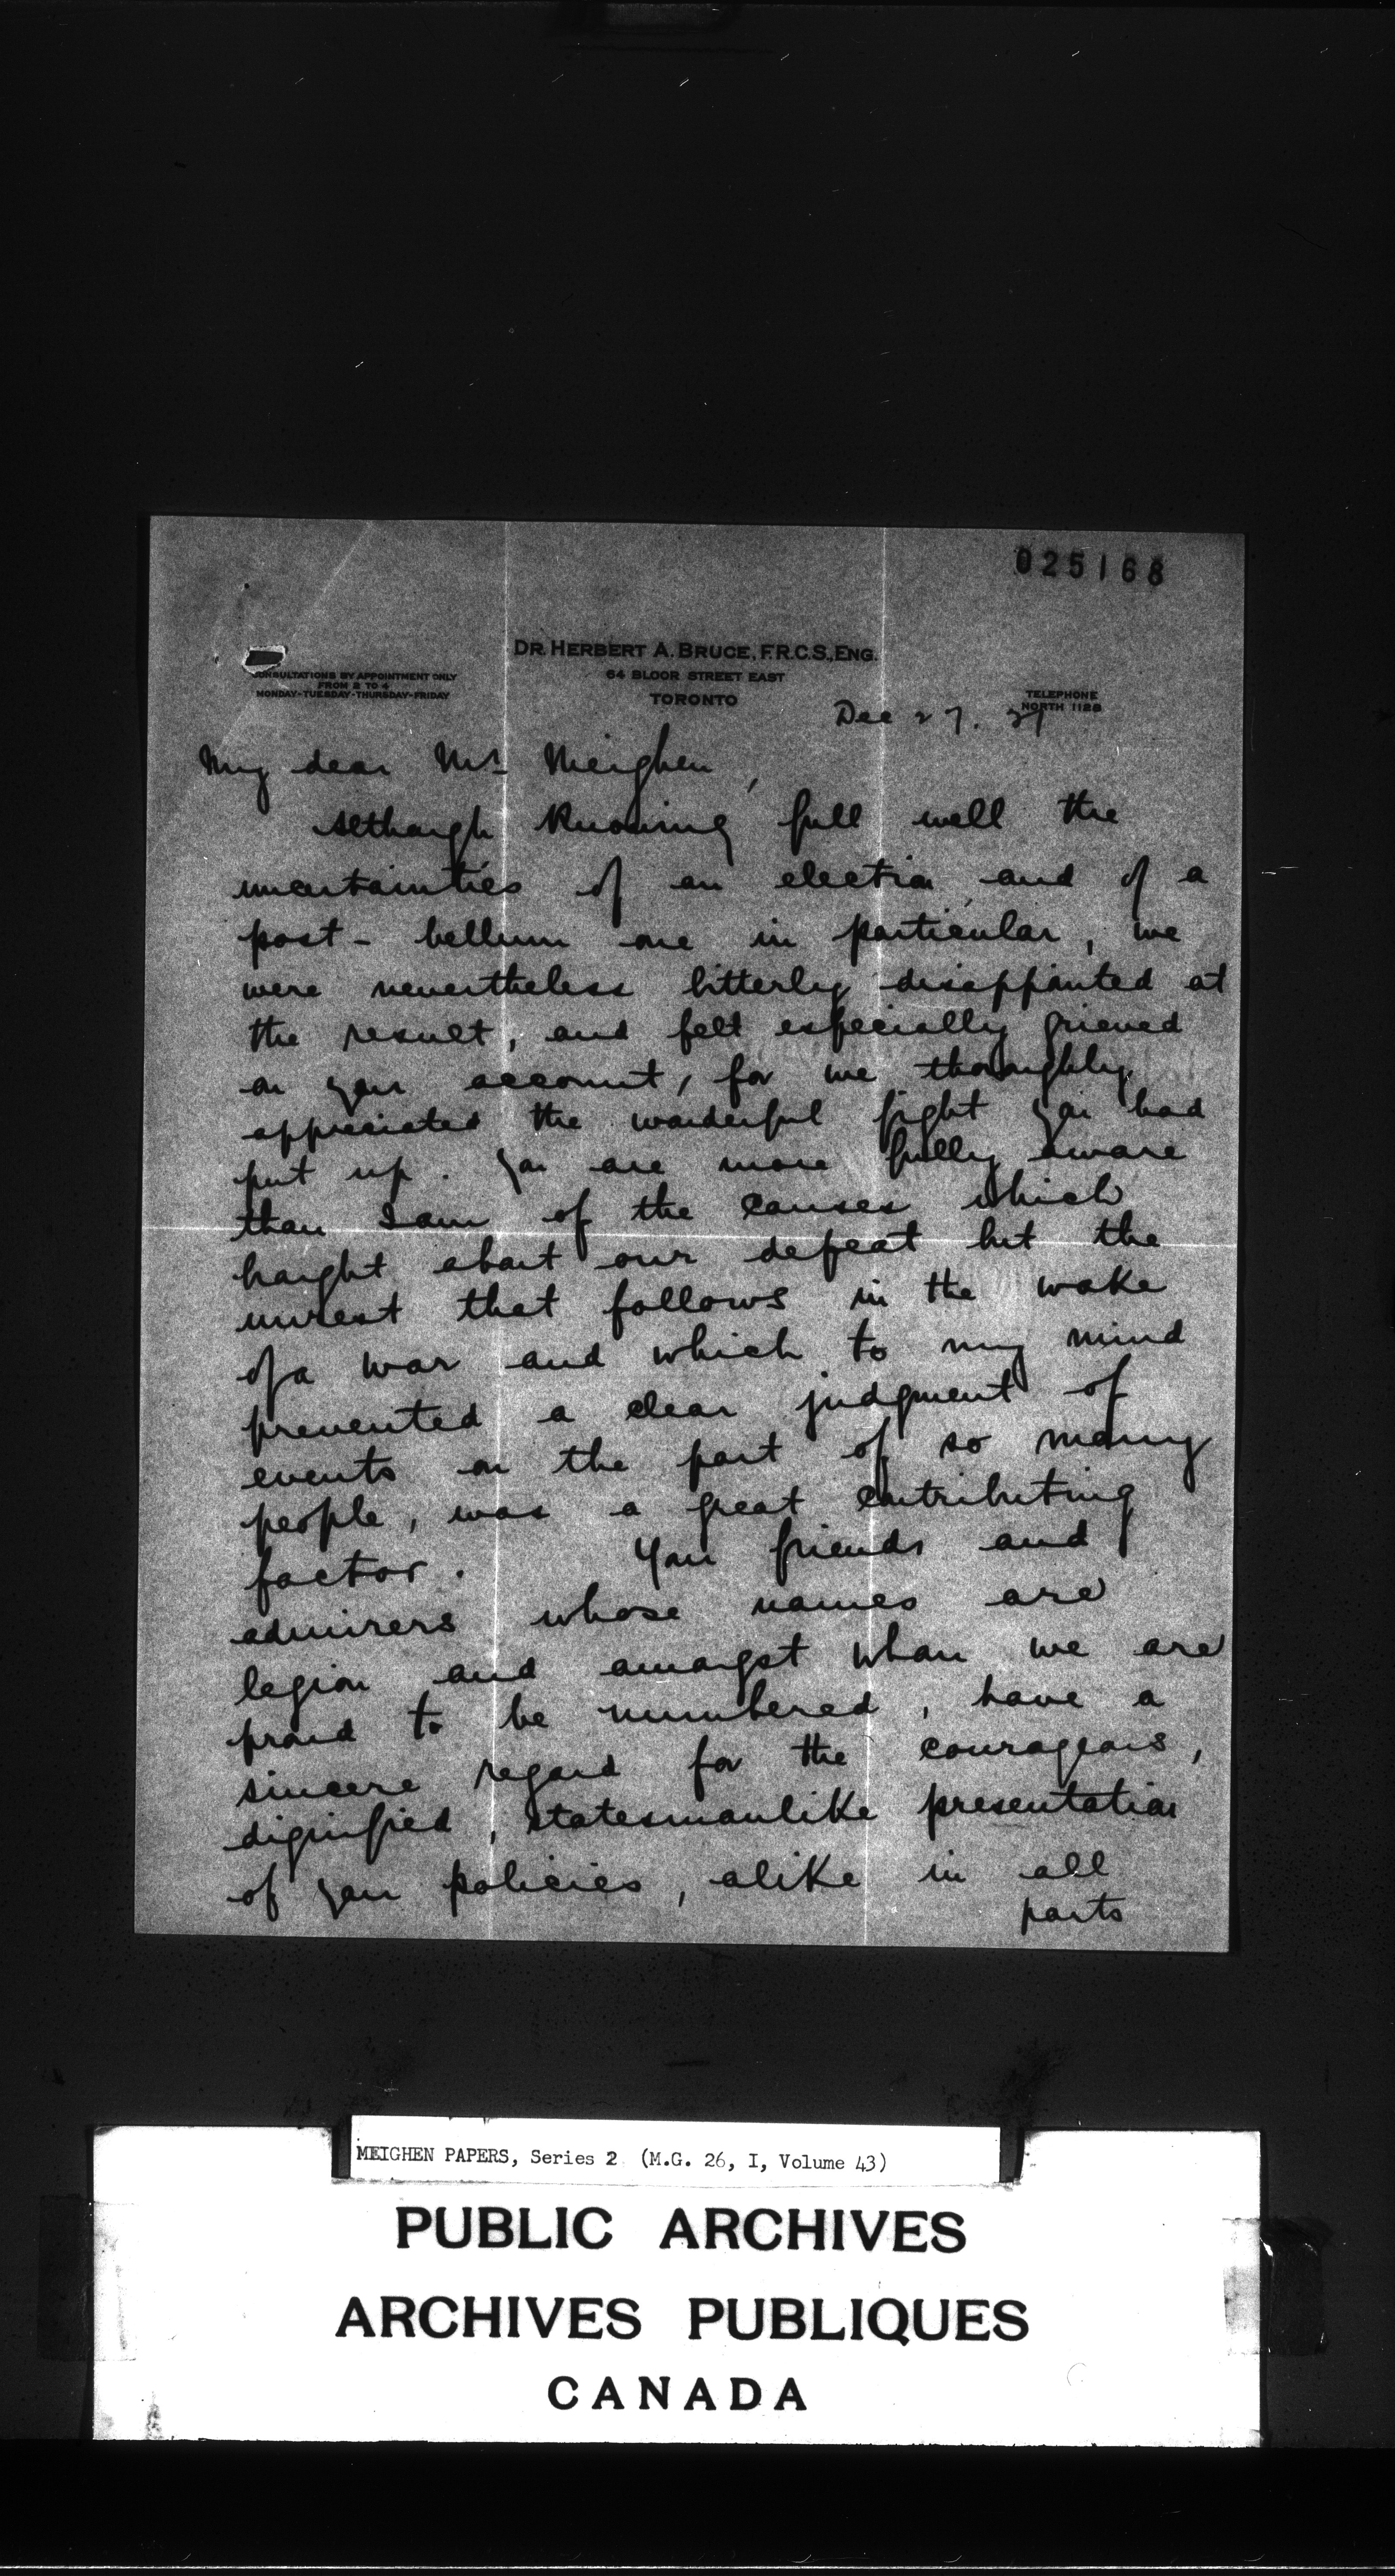 025168
DR. HERBERT A. BRUCE, F.R.C.S., ENG.
64 BLOOR STREET EAST
TORONTO
CONSULTATIONS BY APPOINTMENT ONLY
FROM 2 TO 4
MONDAY-TUESDAY-THURSDAY-FRIDAY
TELEPHONE
NORTH 1128
Dec 27. 21
My dear Mr Meighen,
Although knowing full well the
uncertainties of an election and of a
post-bellum one in particular, we
were nevertheless bitterly disappointed at
the result, and felt especially grieved
on your account, for we thoroughly
appreciated the wonderful fight you had
put up. You are more fully aware
than I am of the causes which
brought about our defeat but the
unrest that follows in the wake
of a war and which to my mind
prevented a clear judgment of
events on the part of so many
people, was a great contributing
factor. Your friends and
admirers whose names are
legion and amongst whom we are
proud to be numbered, have a
sincere regard for the courageous,
dignified, statesmanlike presentation
of your policies, alike in all
parts
MEIGHEN PAPERS, Series 2 (M.G. 26, I, Volume 43)
PUBLIC ARCHIVES
ARCHIVES PUBLIQUES
CANADA